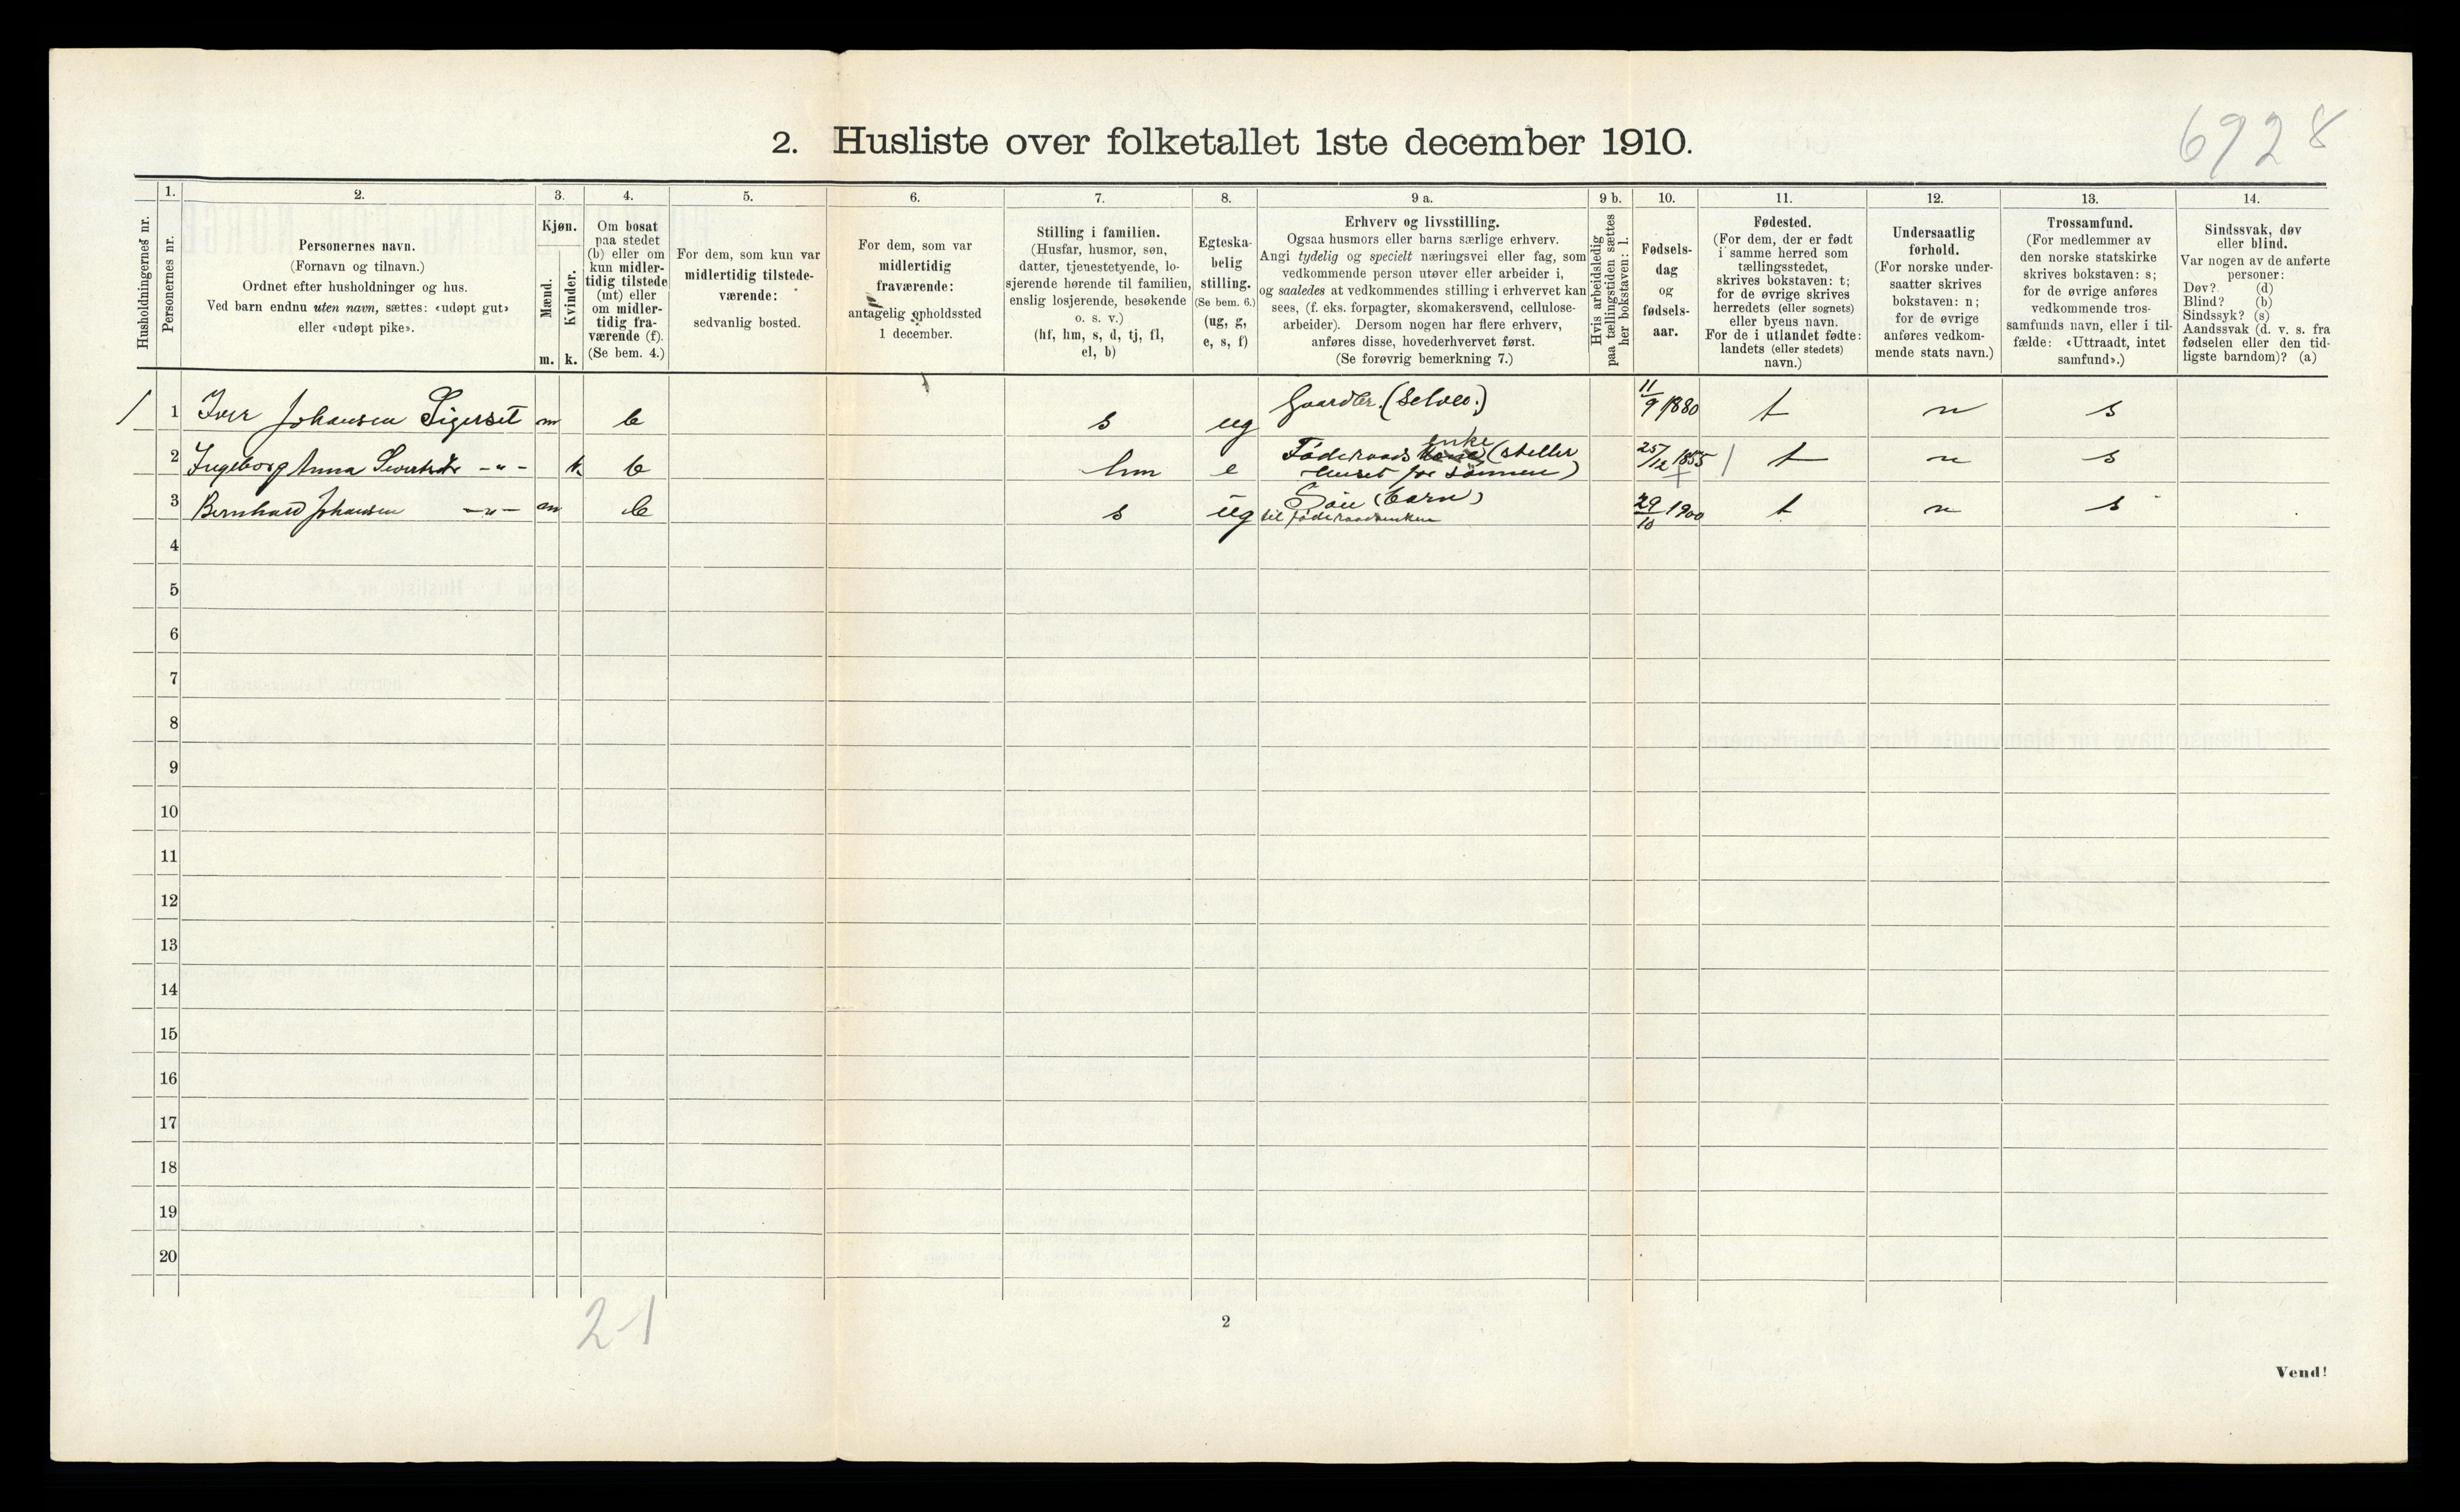 6928
2. Husliste over folketallet 1ste december 1910.
Husholdningernes nr.
1.
Personernes nr.
2.
Personernes navn.
(Fornavn og tilnavn.)
Ordnet efter husholdninger og hus.
Ved barn endnu uten navn, sættes: «udøpt gut»
eller «udøpt pike».
3.
Kjøn.
Mænd.
Kvinder.
m. k.
4.
Om bosat
paa stedet
(b) eller om
kun midler-
tidig tilstede
(mt) eller
om midler-
tidig fra-
værende (f).
(Se bem. 4.)
5.
For dem, som kun var
midlertidig tilstede-
værende:
sedvanlig bosted.
6.
For dem, som var
midlertidig
fraværende:
antagelig opholdssted
1 december.
7.
Stilling i familien.
(Husfar, husmor, søn,
datter, tjenestetyende, lo-
sjerende hørende til familien,
enslig losjerende, besøkende
o. s. v.)
(hf, hm, s, d, tj, fl,
el, b)
8.
Egteska-
belig
stilling.
(Se bem. 6.)
(ug, g,
e, s, f)
9 a.
Erhverv og livsstilling.
Ogsaa husmors eller barns særlige erhverv.
Angi tydelig og specielt næringsvei eller fag, som
vedkommende person utøver eller arbeider i,
og saaledes at vedkommendes stilling i erhvervet kan
sees, (f. eks. forpagter, skomakersvend, cellulose-
arbeider). Dersom nogen har flere erhverv,
anføres disse, hovederhvervet først.
(Se forøvrig bemerkning 7.)
9 b.
Hvis arbeidsledig
paa tællingstiden sættes
her bokstaven: l.
10.
Fødsels-
dag
og
fødsels-
aar.
11.
Fødested.
(For dem, der er født
i samme herred som
tællingsstedet,
skrives bokstaven: t;
for de øvrige skrives
herredets (eller sognets)
eller byens navn.
For de i utlandet fødte:
landets (eller stedets)
navn.)
12.
Undersaatlig
forhold.
(For norske under-
saatter skrives
bokstaven: n;
for de øvrige
anføres vedkom-
mende stats navn.)
13.
Trossamfund.
(For medlemmer av
den norske statskirke
skrives bokstaven: s;
for de øvrige anføres
vedkommende tros-
samfunds navn, eller i til-
fælde: «Uttraadt, intet
samfund».)
14.
Sindssvak, døv
eller blind.
Var nogen av de anførte
personer:
Døv? (d)
Blind? (b)
Sindssyk? (s)
Aandssvak (d. v. s. fra
fødselen eller den tid-
ligste barndom)? (a)
1 1 Iver Johansen Sigerset m b s ug Gaardbr. (Selvei.) 11/9 1880 t n s
2 Ingeborg Anna Sivertsdtr -"- k. b hm e Føderaads enke (steller Huset for Sønnen) 25/12 1855 t n s
3 Bernhard Johansen -"- m b s ug Søn (barn) til føderaadsenken 29/10 1900 t n s
4
5
6
7
8
9
10
11
12
13
14
15
16
17
18
19
20
2-1
2
Vend!